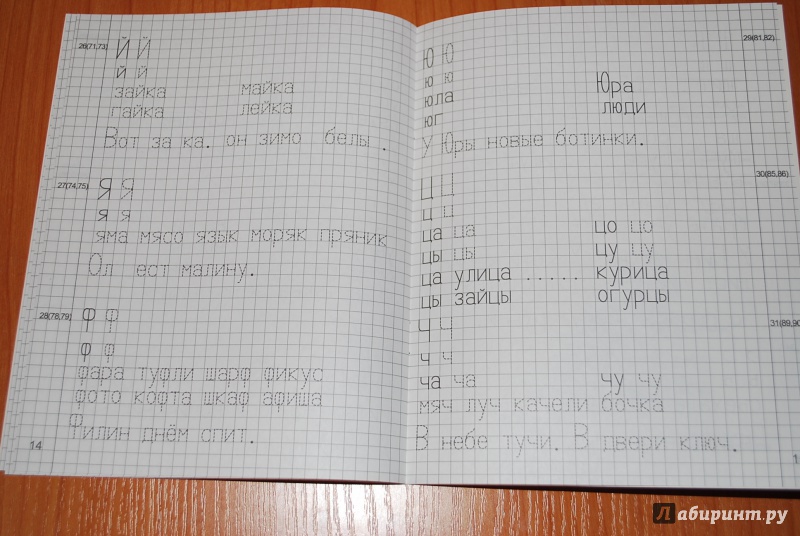 26(71,73) Й Й
й й
зайка майка
гайка лейка
Вот за ка. он зимо белы .
27(74,75) Я Я
я я
яма мясо язык моряк пряник
Ол ест малину.
28(78,79) Ф Ф
ф ф
фара туфли шарф фикус
фото кофта шкаф афиша
Филин днём спит.
14
Ю Ю 29(81,82)
ю ю
юла Юра
юг люди
У Юры новые ботинки.
Ц Ц 30(85,86)
ц ц
ца ца цо цо
цы цы цу цу
ца улица ..... курица
цы зайцы огурцы
Ч Ч 31(89,90
ч ч
ча ча чу чу
мяч луч качели бочка
В небе тучи. В двери ключ.
Лабиринт.ру